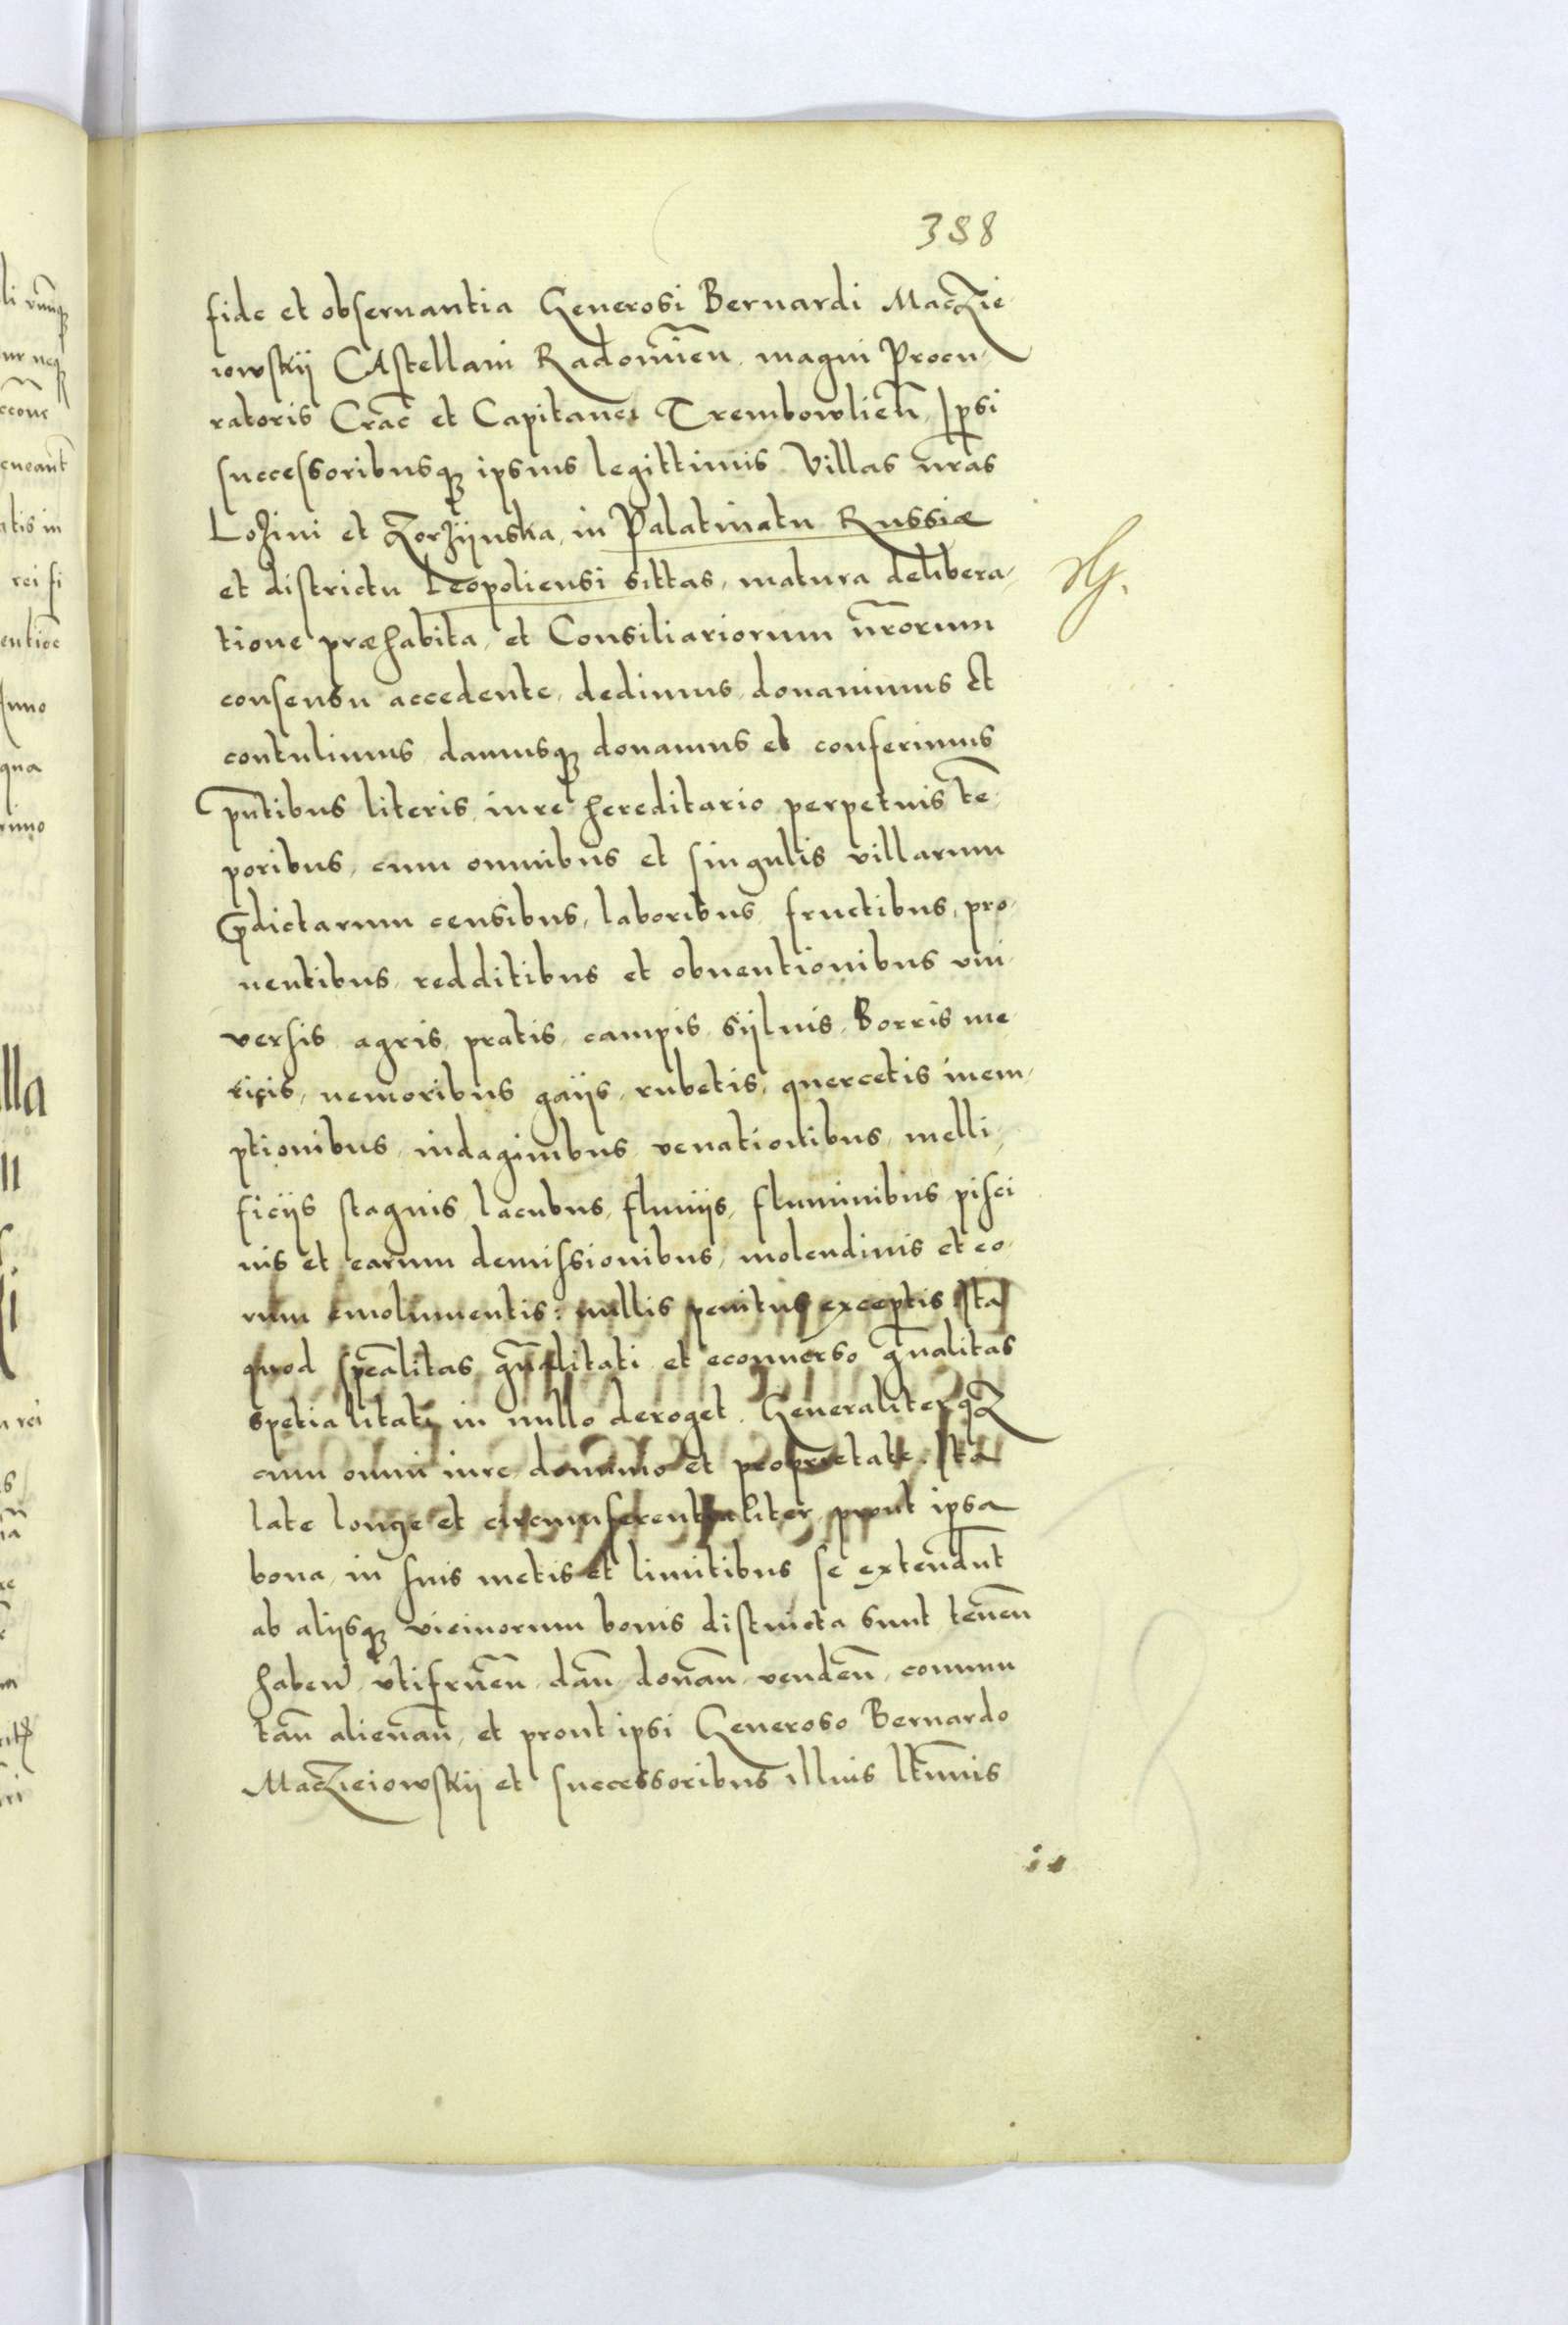 388
fide et obseruantia Generosi Bernardi Maczie
iowskij CAstellani Radomien̄, magni Procu-
ratoris Crac̄ et Capitanei Trembowlien̄, Ipsi
successoribusq; ipsius legittimis Villas nr̄as
Lozini et Zorzijnska, in Palatinatu Russiæ
et districtu Leopoliensi sittas, matura delibera-
tione præhabita, et Consiliariorum nr̄orum
consensu accedente, dedimus, donauimus et
contulimus, damusq; donamus et conferimus
p̄ntibus literis, iure hereditario perpetuis te̅-
poribus, cum omnibus et singulis villarum
p̄dictarum censibus, laboribus, fructibus, pro-
uentibus, redditibus et obuentionibus vni-
versis, agris, pratis, campis, sijluis, Borris me-
ricis, nemoribus gaijs, rubetis, quercetis inem-
ptionibus, indaginibus, venationibus, melli-
ficijs stagnis, lacubus, fluuijs, fluminibus, pisci
nis et earum demissionibus, molendinis et eo-
rum emolumentis: nullis penitus exceptis. Ita
quod spec̄alitas gn̄alitati et econuerso gn̄alitas
spetialitati in nullo deroget. Generaliterq;
cum omni iure dominio et proprietate. Ita
late longe et circumferentialiter, prout ipsa
bona, in suis metis et limitibus se extendunt
ab alijsq; vicinorum bonis distincta sunt tenen̄
haben̄ vtifruen̄, dan̄ donan̄ venden̄, commu
tan̄ alienan̄, et prout ipsi Generoso Bernardo
Maczieiowskij et successoribus illius lt̄imis